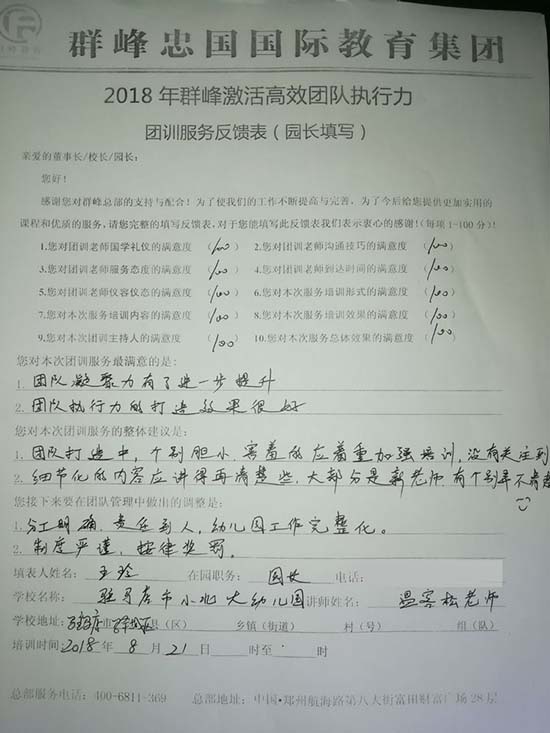 群峰忠国国际教育集团
2018年群峰激活高效团队执行力
团训服务反馈表(园长填写)
亲爱的董事长/校长/园长:
您好!
感谢您对群峰总部的支持与配合!为了使我们的工作不断提高与完善,为了今后给您提供更加实用的
课程和优质的服务,请您完整的填写反馈表,对于您能填写此反馈表我们表示衷心的感谢!(每项1-100分)!
1.您对团训老师国学礼仪的满意度 (100) 2.您对团训老师沟通技巧的满意度 (100)
3.您对团训老师服务态度的满意度 (100) 4.您对团训老师到达时间的满意度 (100)
5.您对团训老师仪容仪态的满意度 (100) 6.您对本次服务培训形式的满意度 (100)
7.您对本次服务培训内容的满意度 (100) 8.您对本次服务培训效果的满意度 (100)
9.您对本次团训主持人的满意度 (100) 10.您对本次服务总体效果的满意度 (100)
您对本次团训服务最满意的是:
1. 团队凝聚力有了进一步提升
2. 团队执行力的打造效果很好
您对本次团训服务的整体建议是:
1. 团队打造中,个别胆小、害羞的应着重加强培训,没有关注到
2. 细节化的内容应讲得再清楚些,大部分是新老师,有个别弄不清楚
您接下来要在团队管理中做出的调整是:
1. 分工明确,责任到人,幼儿园工作完整化。
2. 制度严谨,按律奖罚。
填表人姓名: 王玲 在园职务: 园长 电话:
学校名称: 驻马店市小北大幼儿园 讲师姓名: 温客松老师
学校地址: 驻马店市 县(区) 乡镇(街道) 村(号) 组(队)
培训时间: 2018年 8月 21日 时至 时
总部服务电话:400-6811-369 总部地址:中国·郑州航海路第八大街富田财富广场28层